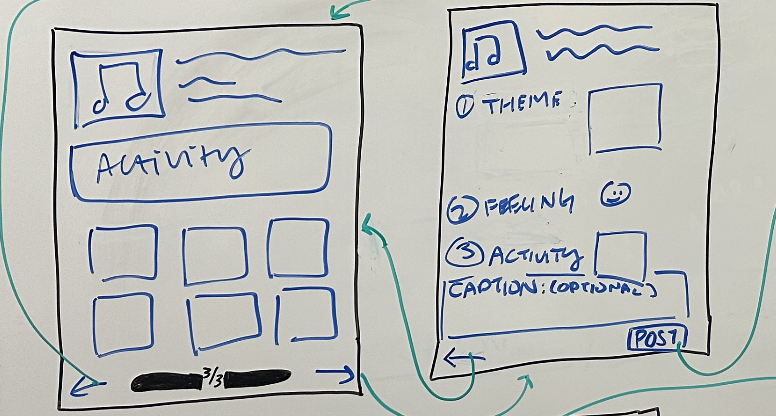 Activity
3/3
① THEME
② FEELING
③ ACTIVITY
CAPTION: (OPTIONAL)
POST